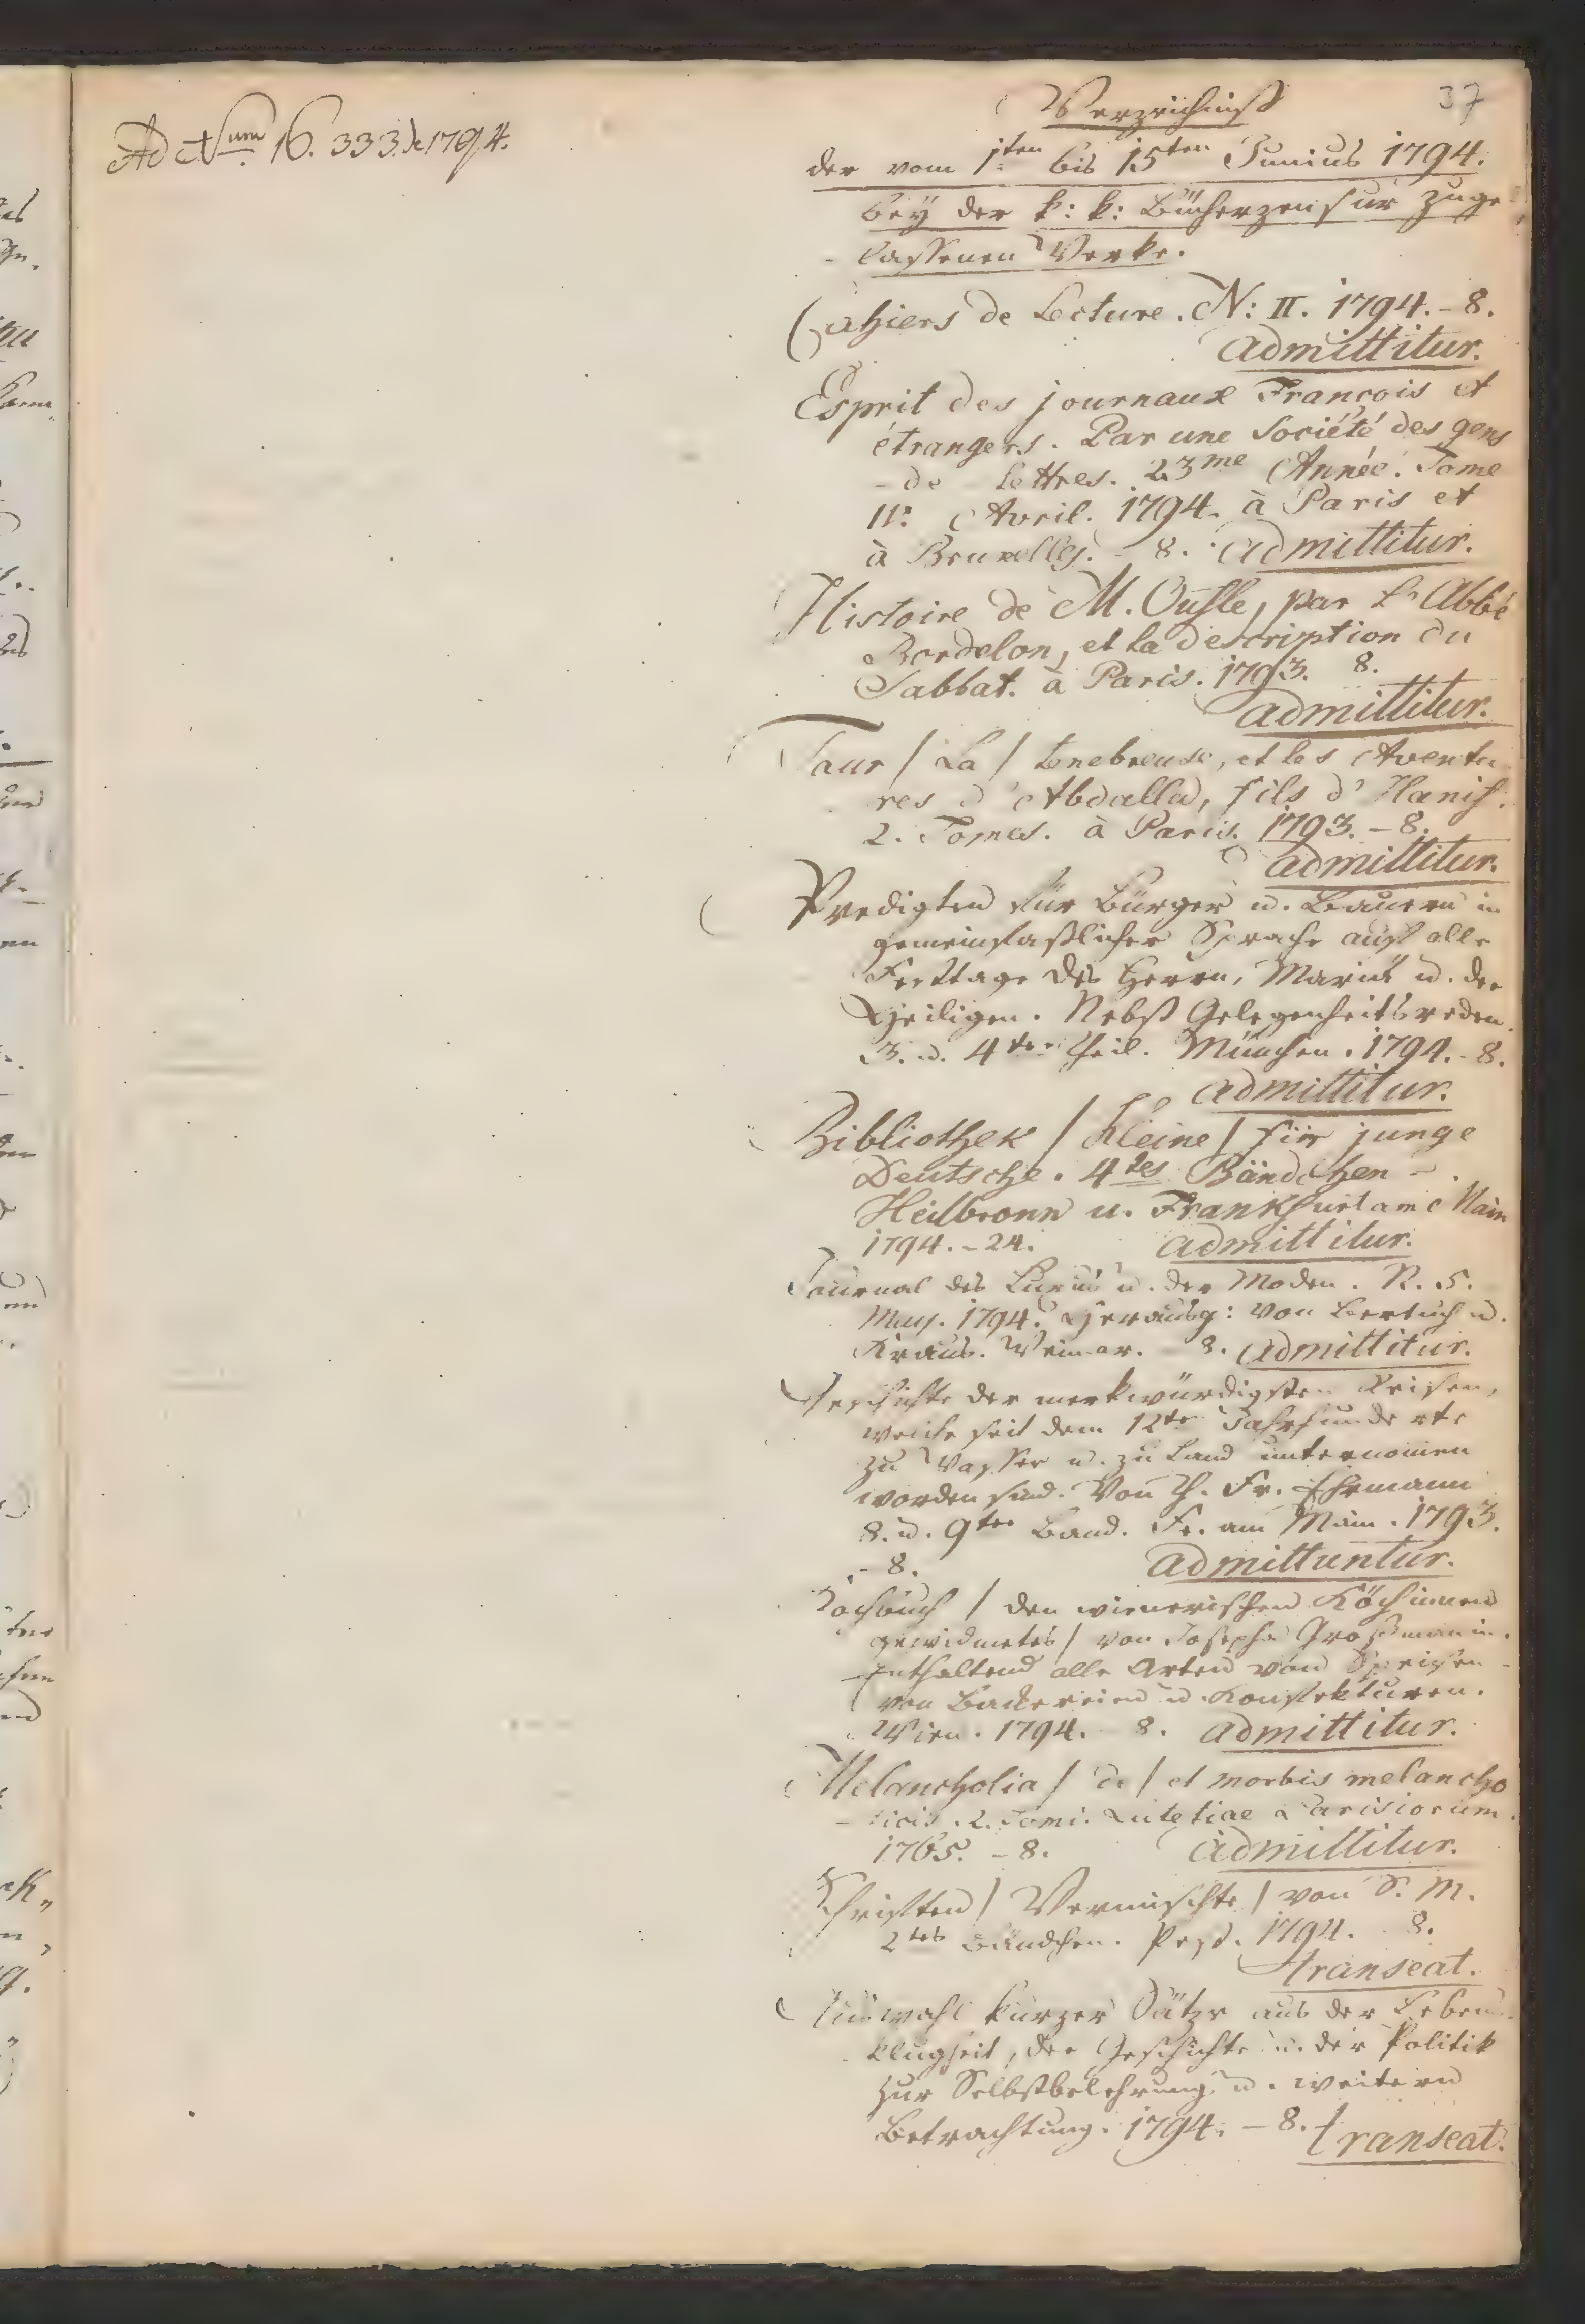 37
Ad Num 16.333. de 1794.
Verzeichniß
der vom 1ten bis 15ten Junius 1794.
bey der k: k: Bücherzensur zuge-
- lassenen Werke.
Cahiers de Lecture. N: II. 1794. - 8.
admittitur.
Esprit des journaux François et
étrangers. Par une Société des gens
- de Lettres. 23me Année. Tome
II. Avril. 1794. à Paris et
à Bruxelles. - 8. admittitur.
Histoire de M. Oufle, par L'Abbé
Bordelon, et la description du
Sabbat. à Paris. 1793. 8.
admittitur.
Taur / La / tenebreuse, et les Aventu
res d'Abdalla, fils d'Hanif.
2. Tomes. à Paris. 1793. - 8.
admittitur.
Predigten für Bürger u. Bauern in
gemeinfaßlicher Sprache auf alle
Festtage des Herrn, Mariä u. der
Heiligen. Nebst Gelegenheitsreden.
3. u. 4ter Theil. München. 1794. - 8.
admittitur.
Bibliothek / kleine / für junge
Deutsche. 4tes Bändchen -
Heilbronn u. Frankfurt am Main
1794. - 24. admittitur.
Journal des Luxus u. der Moden. N. 5.
May. 1794. Herausg: von Bertuch u.
Kraus. Weimar. - 8. admittitur.
Geschichte der merkwürdigsten Reisen,
welche seit dem 12ten Jahrhunderte
zu Wasser u. zu Land unternomen
worden sind. Von Th. Fr. Ehrmann
8. u. 9ter Band. Fr. am Main. 1793.
- 8. admittuntur.
Kochbuch / den wienerischen Köchinnen
gewidmetes / von Josepha Großmanin.
Enthaltend alle Arten von Speisen -
von Backereien u. Konfekturen.
Wien. 1794. - 8. admittitur.
Melancholia / de / et morbis melancho
- licis. 2. Tomi. Lutetiae Parisiorum.
1765. - 8. admittitur.
Schriften / Vermischte / von S. M.
2tes Bändchen. Pest. 1794. - 8.
transeat.
Auswahl kurzer Sätze aus der Lebens-
klugheit, der Geschichte u. der Politik
zur Selbstbelehrung u. weitern
Betrachtung. 1794. - 8. transeat.